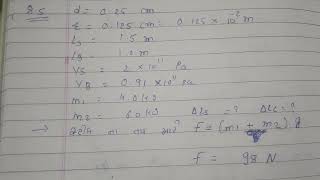 8.5 d = 0.25 cm
r = 0.125 cm = 0.125 × 10⁻² m
Ls = 1.5 m
LB = 1.0 m
Ys = 2 × 10¹¹ Pa
YB = 0.91 × 10¹¹ Pa
m1 = 4.0 kg
m2 = 6.0 kg Δls = ? Δls = ?
→ માટે F = (m1 + m2) g
F = 98 N